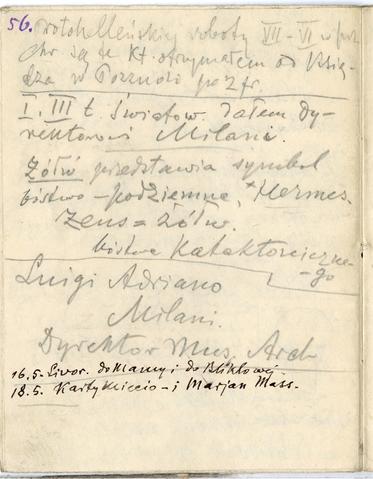 56. protohelleńskiej roboty VII–VI w prz
Chr są te kt otrzymałem od Księ-
dza w Pozzuoli po 2 fr.
I. III t. Światow. dałem dy-
rektorowi Milani.
Żółw przedstawia symbol
bóstwo – podziemne, Hermes.
Zeus = żółw.
bóstwa Katachtonicznego
Luigi Adriano
Milani.
Dyrektor Mus. Arch
16.5. Livor. do Mamy i do Bliklowej.
18.5. Karty Miccio – i Marjan Mass.